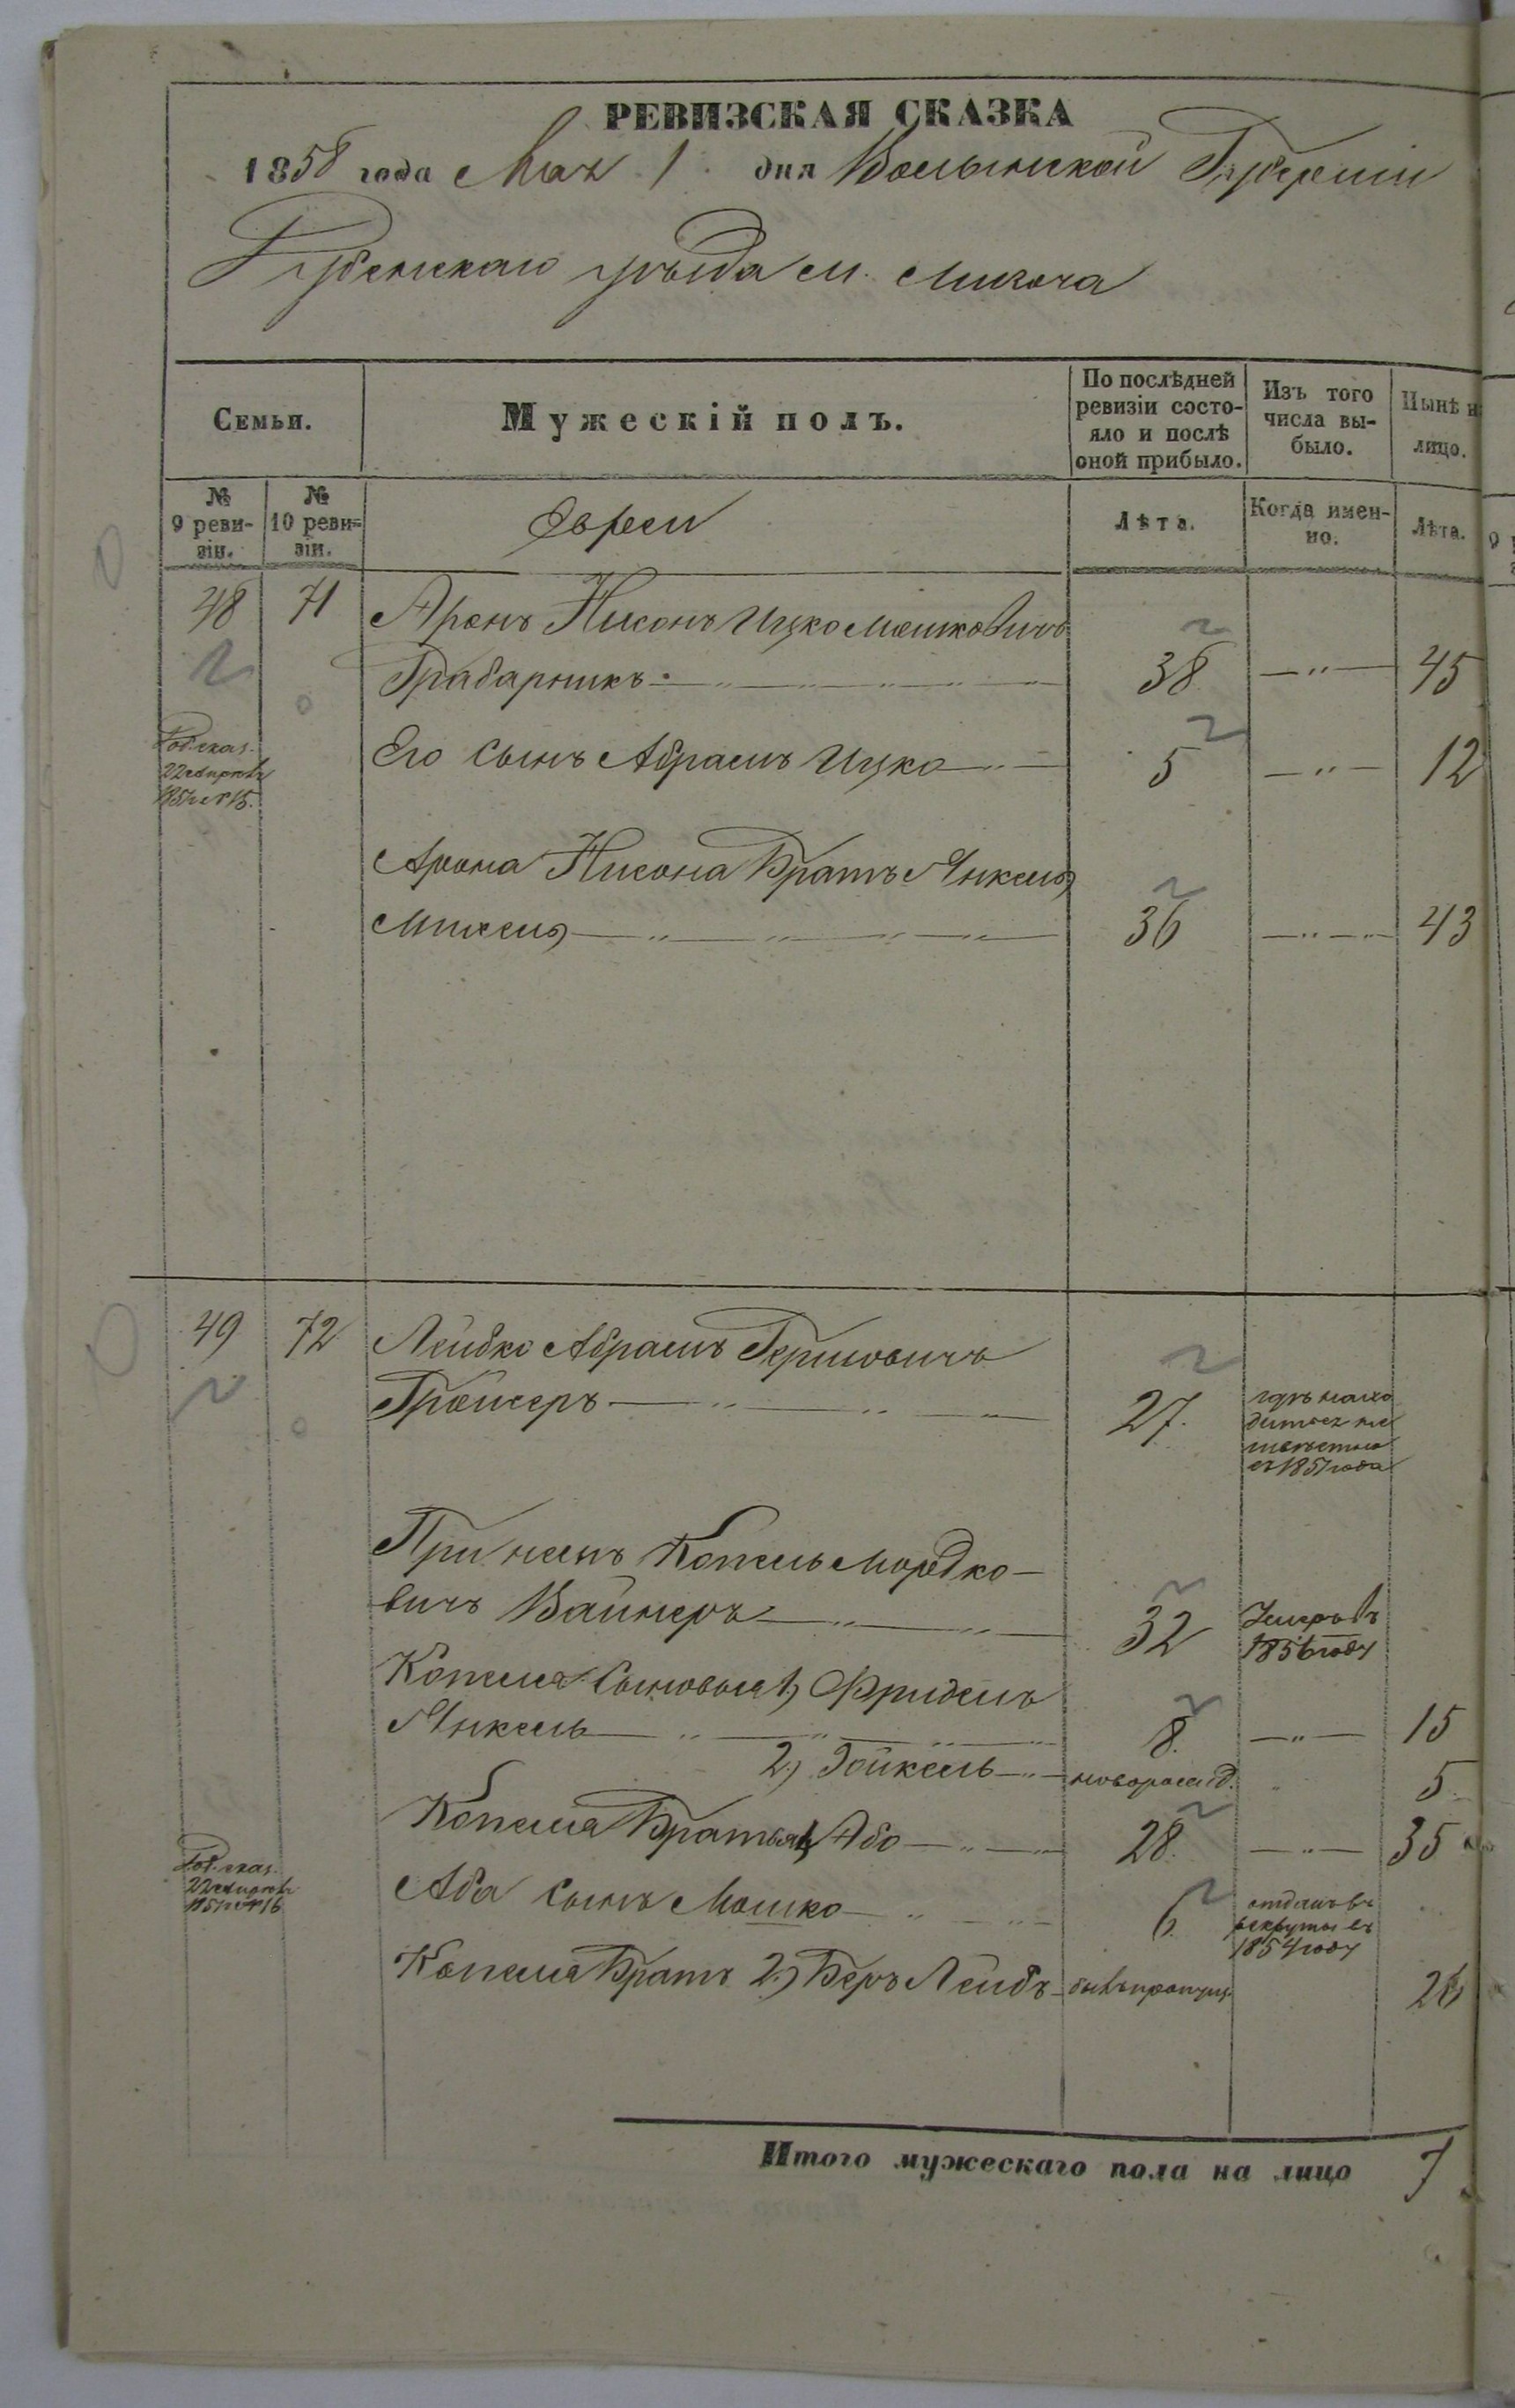 РЕВИЗСКАЯ СКАЗКА
1858 года Мая 1 дня Волынской Губерніи
Дубенскаго уѣзда м. Мизоча
Семьи.
Мужескій полъ.
По послѣдней ревизіи состо-
яло и послѣ
оной прибыло.
Изъ того
числа вы-
было.
Нынѣ н
лицо.
№
9 реви-
зіи.
№
10 реви-
зіи.
Евреи
Лѣта.
Когда имен-
но.
Лѣта.
48 71 Аронъ Нисонъ Ицко Мошковичъ
Грабарникъ 38 — " — 45
Его Сынъ Абрамъ Ицко — " — 5 — " — 12
Арона Нисона Братъ Янкель
Михель 36 — " — 43
49 72 Лейбко Абрамъ Гершовичъ
27. гдѣ нахо
дится не
извѣстно
съ 1857 года
При немъ Копель Мордко-
вичъ Вайнеръ 32 Умеръ въ
1856 году
Копеля Сыновья 1) Фридель
Янкель 8. — " — 15
2.) Зойкель — " — новорожд. " 5.
Копеля Братья 1) Або — " — 28. — " — 35
Аба сынъ Мошко 6. отданъ въ
рекруты въ
1854 году
Копеля Братъ 2.) Беръ Лейбъ былъ пропущ. 26
Итого мужескаго пола на лицо 7.